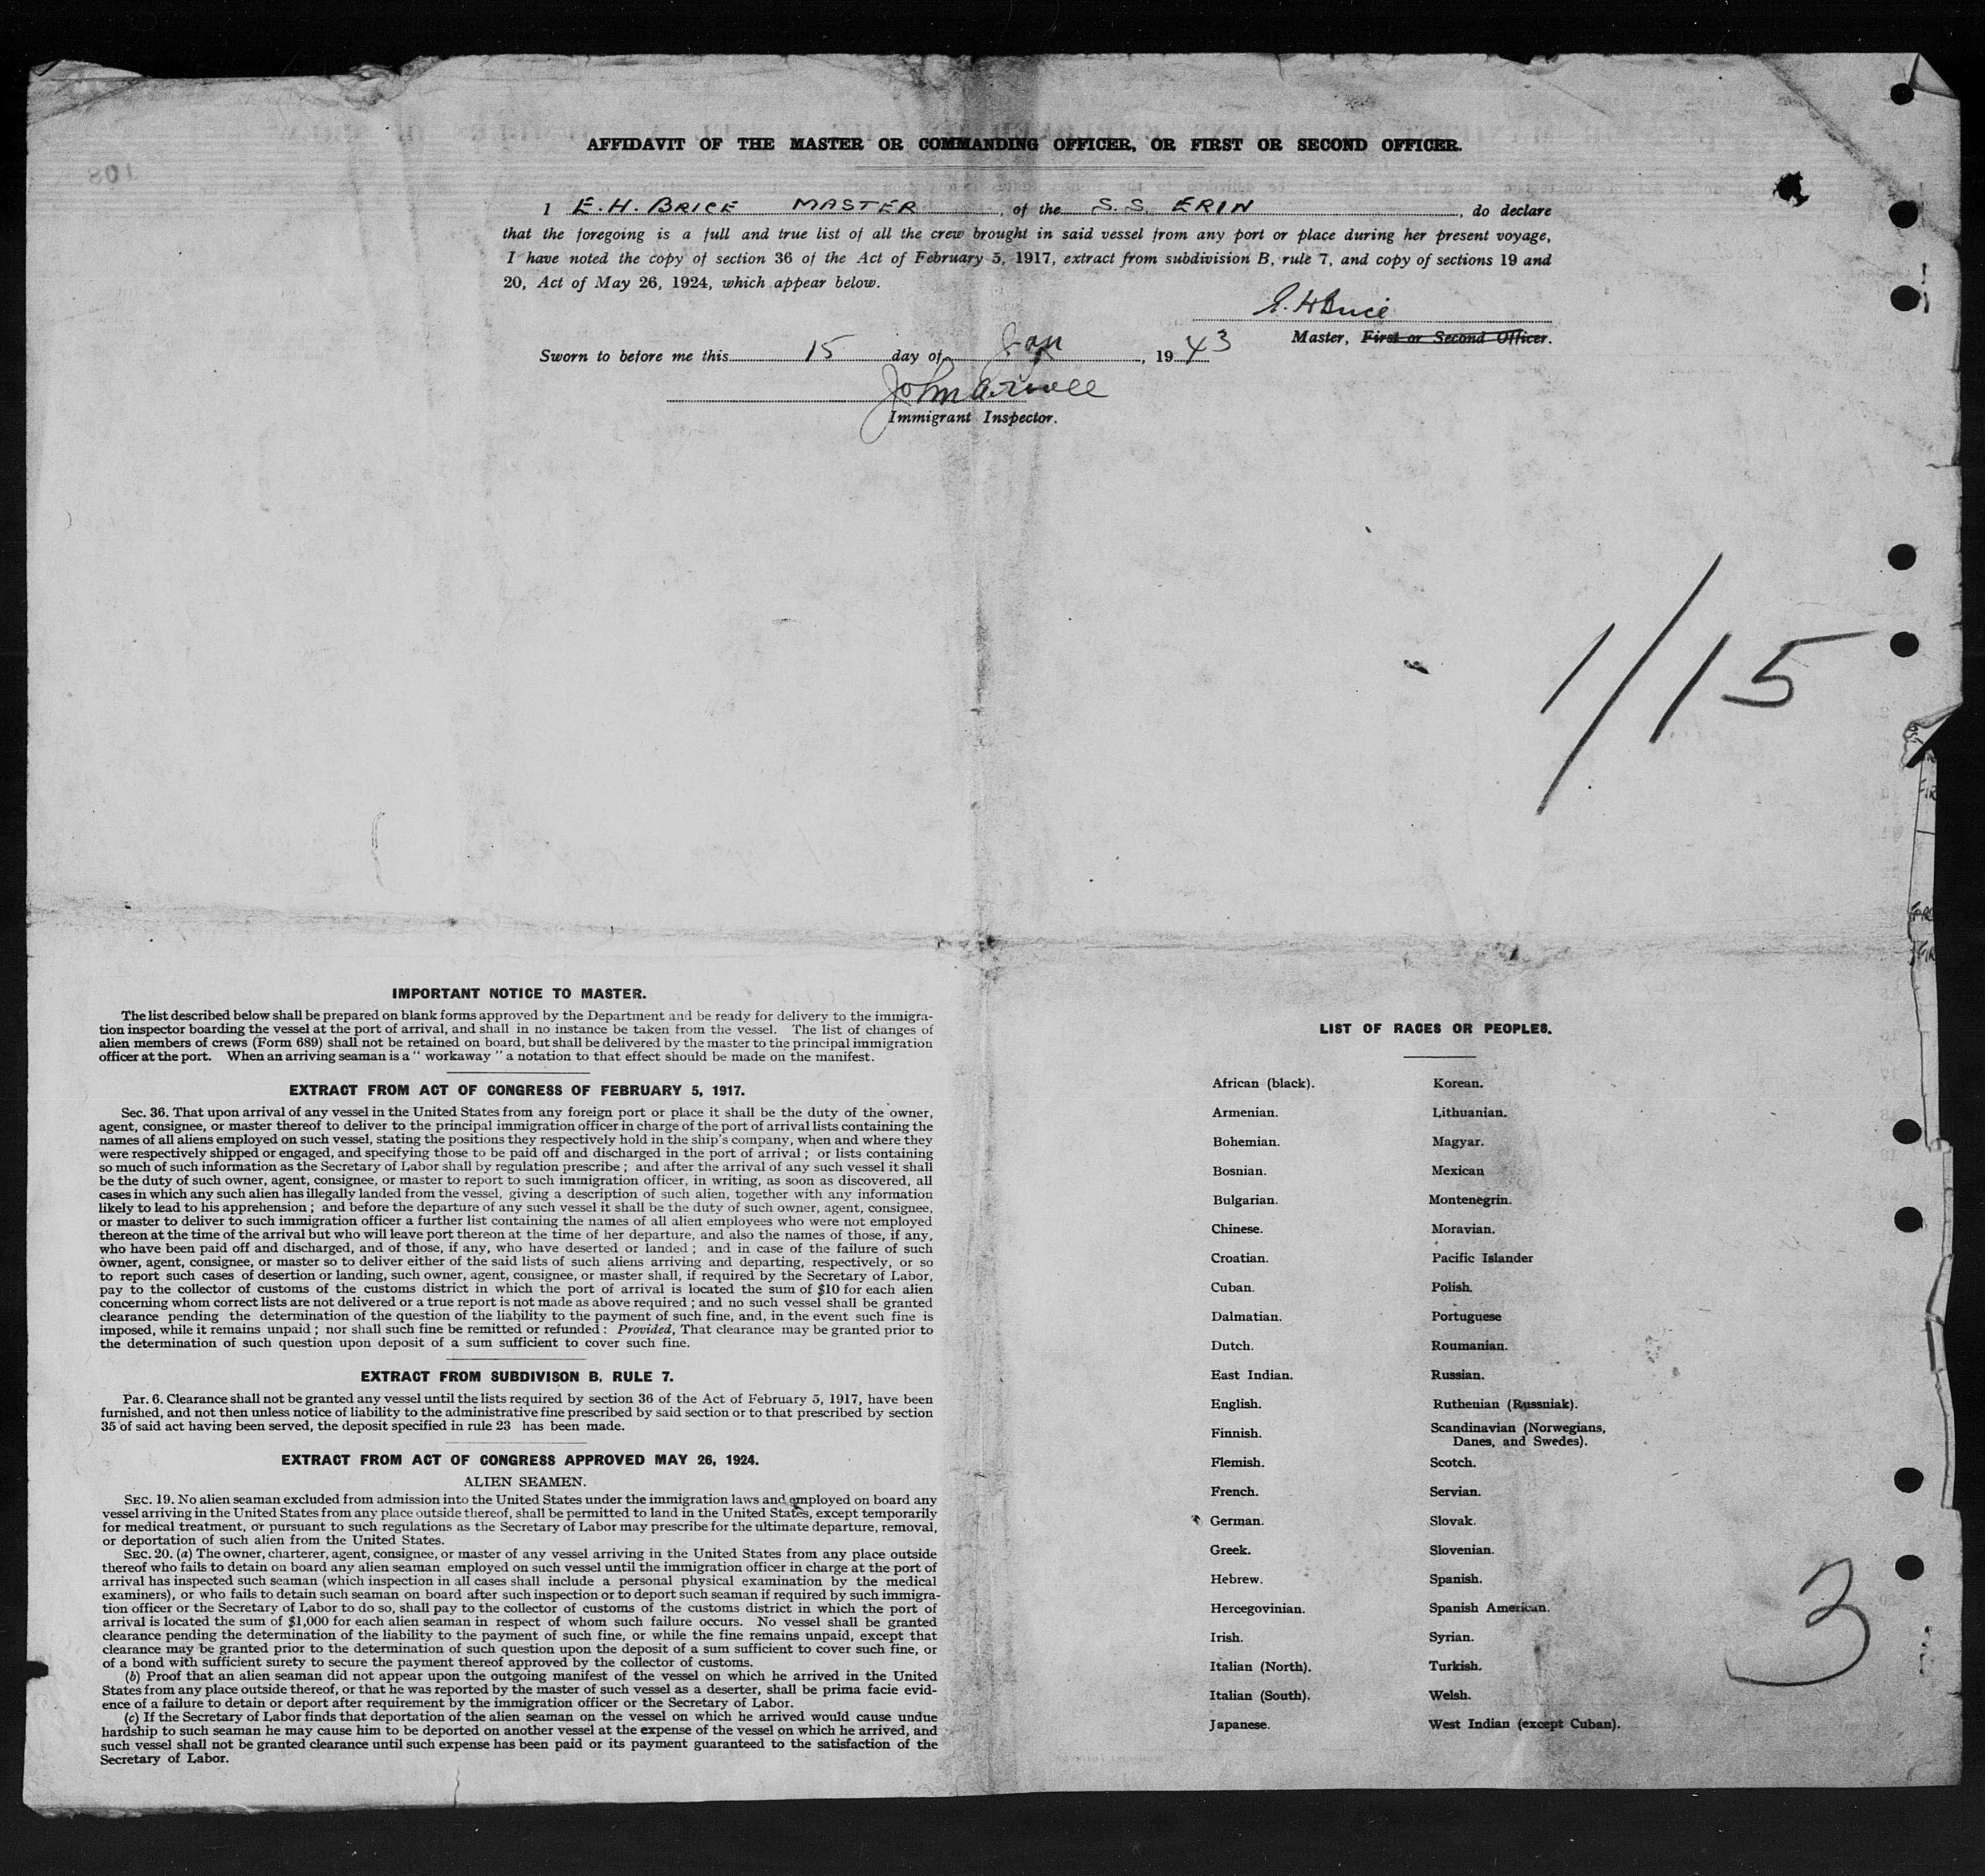 AFFIDAVIT OF THE MASTER OR COMMANDING OFFICER, OR FIRST OR SECOND OFFICER.
108
I E.H. BRICE MASTER, of the S.S. ERIN, do declare
that the foregoing is a full and true list of all the crew brought in said vessel from any port or place during her present voyage,
I have noted the copy of section 36 of the Act of February 5, 1917, extract from subdivision B, rule 7, and copy of sections 19 and
20, Act of May 26, 1924, which appear below.
E. H Brice
Master, First or Second Officer.
Sworn to before me this 15 day of Jan, 1943
John
Immigrant Inspector.
1/15
IMPORTANT NOTICE TO MASTER.
The list described below shall be prepared on blank forms approved by the Department and be ready for delivery to the immigra-
tion inspector boarding the vessel at the port of arrival, and shall in no instance be taken from the vessel. The list of changes of
alien members of crews (Form 689) shall not be retained on board, but shall be delivered by the master to the principal immigration
officer at the port. When an arriving seaman is a " workaway " a notation to that effect should be made on the manifest.
EXTRACT FROM ACT OF CONGRESS OF FEBRUARY 5, 1917.
Sec. 36. That upon arrival of any vessel in the United States from any foreign port or place it shall be the duty of the owner,
agent, consignee, or master thereof to deliver to the principal immigration officer in charge of the port of arrival lists containing the
names of all aliens employed on such vessel, stating the positions they respectively hold in the ship's company, when and where they
were respectively shipped or engaged, and specifying those to be paid off and discharged in the port of arrival ; or lists containing
so much of such information as the Secretary of Labor shall by regulation prescribe ; and after the arrival of any such vessel it shall
be the duty of such owner, agent, consignee, or master to report to such immigration officer, in writing, as soon as discovered, all
cases in which any such alien has illegally landed from the vessel, giving a description of such alien, together with any information
likely to lead to his apprehension ; and before the departure of any such vessel it shall be the duty of such owner, agent, consignee,
or master to deliver to such immigration officer a further list containing the names of all alien employees who were not employed
thereon at the time of the arrival but who will leave port thereon at the time of her departure, and also the names of those, if any,
who have been paid off and discharged, and of those, if any, who have deserted or landed ; and in case of the failure of such
owner, agent, consignee, or master so to deliver either of the said lists of such aliens arriving and departing, respectively, or so
to report such cases of desertion or landing, such owner, agent, consignee, or master shall, if required by the Secretary of Labor,
pay to the collector of customs of the customs district in which the port of arrival is located the sum of $10 for each alien
concerning whom correct lists are not delivered or a true report is not made as above required ; and no such vessel shall be granted
clearance pending the determination of the question of the liability to the payment of such fine, and, in the event such fine is
imposed, while it remains unpaid ; nor shall such fine be remitted or refunded : Provided, That clearance may be granted prior to
the determination of such question upon deposit of a sum sufficient to cover such fine.
EXTRACT FROM SUBDIVISON B, RULE 7.
Par. 6. Clearance shall not be granted any vessel until the lists required by section 36 of the Act of February 5, 1917, have been
furnished, and not then unless notice of liability to the administrative fine prescribed by said section or to that prescribed by section
35 of said act having been served, the deposit specified in rule 23 has been made.
EXTRACT FROM ACT OF CONGRESS APPROVED MAY 26, 1924.
ALIEN SEAMEN.
SEC. 19. No alien seaman excluded from admission into the United States under the immigration laws and employed on board any
vessel arriving in the United States from any place outside thereof, shall be permitted to land in the United States, except temporarily
for medical treatment, or pursuant to such regulations as the Secretary of Labor may prescribe for the ultimate departure, removal,
or deportation of such alien from the United States.
SEC. 20. (a) The owner, charterer, agent, consignee, or master of any vessel arriving in the United States from any place outside
thereof who fails to detain on board any alien seaman employed on such vessel until the immigration officer in charge at the port of
arrival has inspected such seaman (which inspection in all cases shall include a personal physical examination by the medical
examiners), or who fails to detain such seaman on board after such inspection or to deport such seaman if required by such immigra-
tion officer or the Secretary of Labor to do so, shall pay to the collector of customs of the customs district in which the port of
arrival is located the sum of $1,000 for each alien seaman in respect of whom such failure occurs. No vessel shall be granted
clearance pending the determination of the liability to the payment of such fine, or while the fine remains unpaid, except that
clearance may be granted prior to the determination of such question upon the deposit of a sum sufficient to cover such fine, or
of a bond with sufficient surety to secure the payment thereof approved by the collector of customs.
(b) Proof that an alien seaman did not appear upon the outgoing manifest of the vessel on which he arrived in the United
States from any place outside thereof, or that he was reported by the master of such vessel as a deserter, shall be prima facie evid-
ence of a failure to detain or deport after requirement by the immigration officer or the Secretary of Labor.
(c) If the Secretary of Labor finds that deportation of the alien seaman on the vessel on which he arrived would cause undue
hardship to such seaman he may cause him to be deported on another vessel at the expense of the vessel on which he arrived, and
such vessel shall not be granted clearance until such expense has been paid or its payment guaranteed to the satisfaction of the
Secretary of Labor.
LIST OF RACES OR PEOPLES.
African (black). Korean.
Armenian. Lithuanian.
Bohemian. Magyar.
Bosnian. Mexican
Bulgarian. Montenegrin.
Chinese. Moravian.
Croatian. Pacific Islander
Cuban. Polish.
Dalmatian. Portuguese
Dutch. Roumanian.
East Indian. Russian.
English. Ruthenian (Russniak).
Finnish. Scandinavian (Norwegians,
Danes, and Swedes).
Flemish. Scotch.
French. Servian.
German. Slovak.
Greek. Slovenian.
Hebrew. Spanish.
Hercegovinian. Spanish American.
Irish. Syrian.
Italian (North). Turkish.
Italian (South). Welsh.
Japanese. West Indian (except Cuban).
3